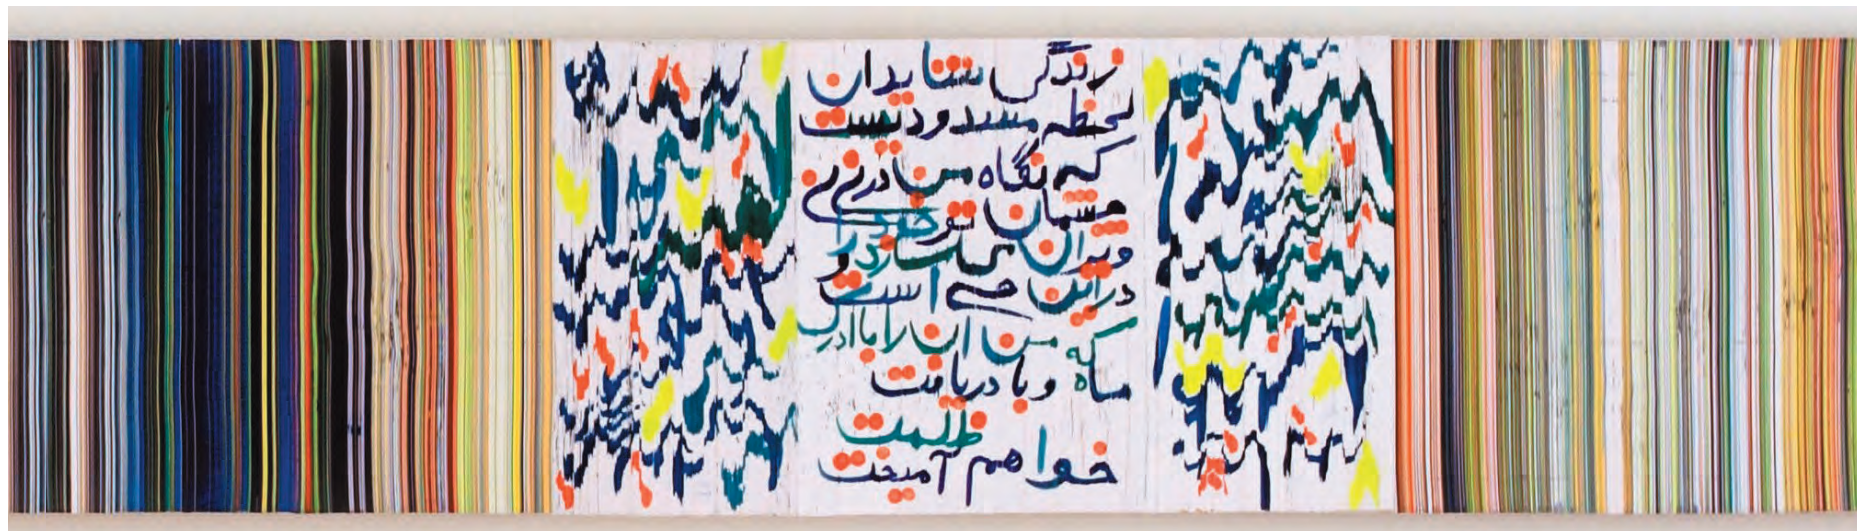 زندگی شاید ان
لحظه مسدودیست
که نگاه من در نی نی
چشمان تو خود را
ویران می سازد و
در این حسی است
که من ان را با ادراک
ماه و با دریافت
ظلمت
خواهم آمیخت